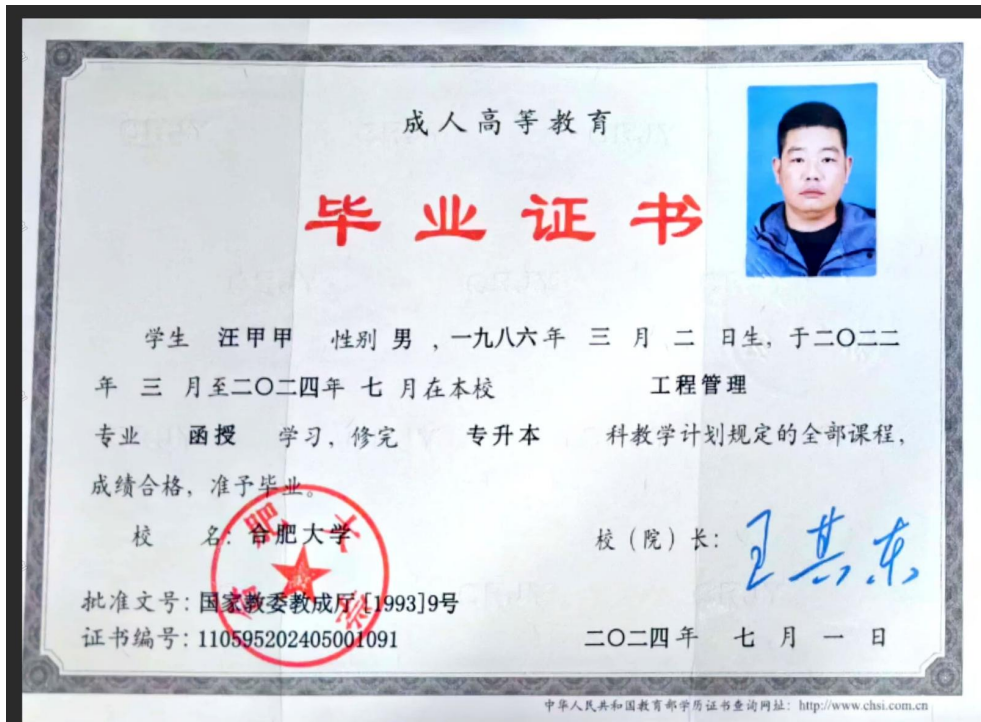 成人高等教育
毕业证书
学生 汪甲甲 性别 男 ，一九八六年 三 月 二 日生，于二〇二二
年 三 月至二〇二四年 七 月在本校 工程管理
专业 函授 学习，修完 专升本 科教学计划规定的全部课程，
成绩合格，准予毕业。
校 名：合肥大学 校（院）长：王其东
批准文号：国家教委教成厅［1993]9号
证书编号：110595202405001091 二〇二四年 七 月 一 日
合肥大学
中华人民共和国教育部学历证书查询网址：http://www.chsi.com.cn